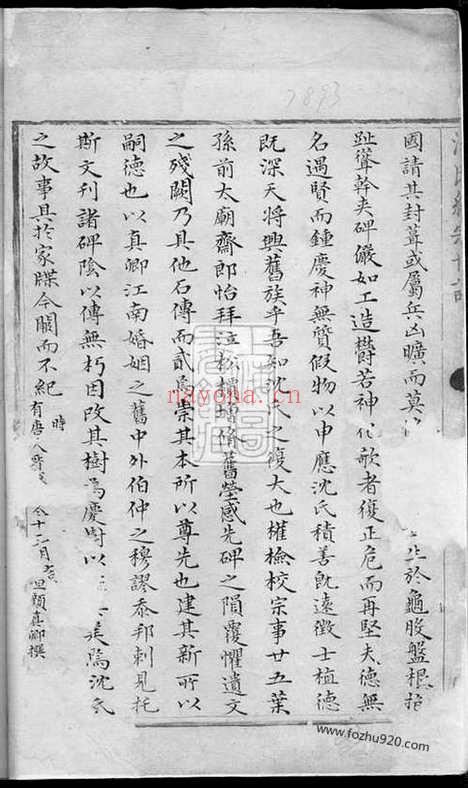 7893
國請其封葺或屬兵凶曠而莫
止於龜股盤根指
趾聳幹夾碑儼如工造欝若神化歌者復正危而再堅夫德無
名遇賢而鍾慶神無質假物以申應沈氏積善既遠徵士植德
既深天將興舊族乎吾知沈氏之復大也權檢校宗事廿五葉
孫前太廟齋郎怡拜泣松檟增修舊塋感先碑之隕覆懼遺文
之殘闕乃具他石傳而貳焉崇其本所以尊先也建其新所以
嗣德也以真卿江南婚姻之舊中外伯仲之穆謬忝邦刺見托
斯文刊諸碑陰以傳無朽因改其樹為慶樹以
吴隱沈氏
之故事具於家牒今闕而不紀 時有唐
十二月
也顏真卿撰
nayona.cn
www.fozhu920.com